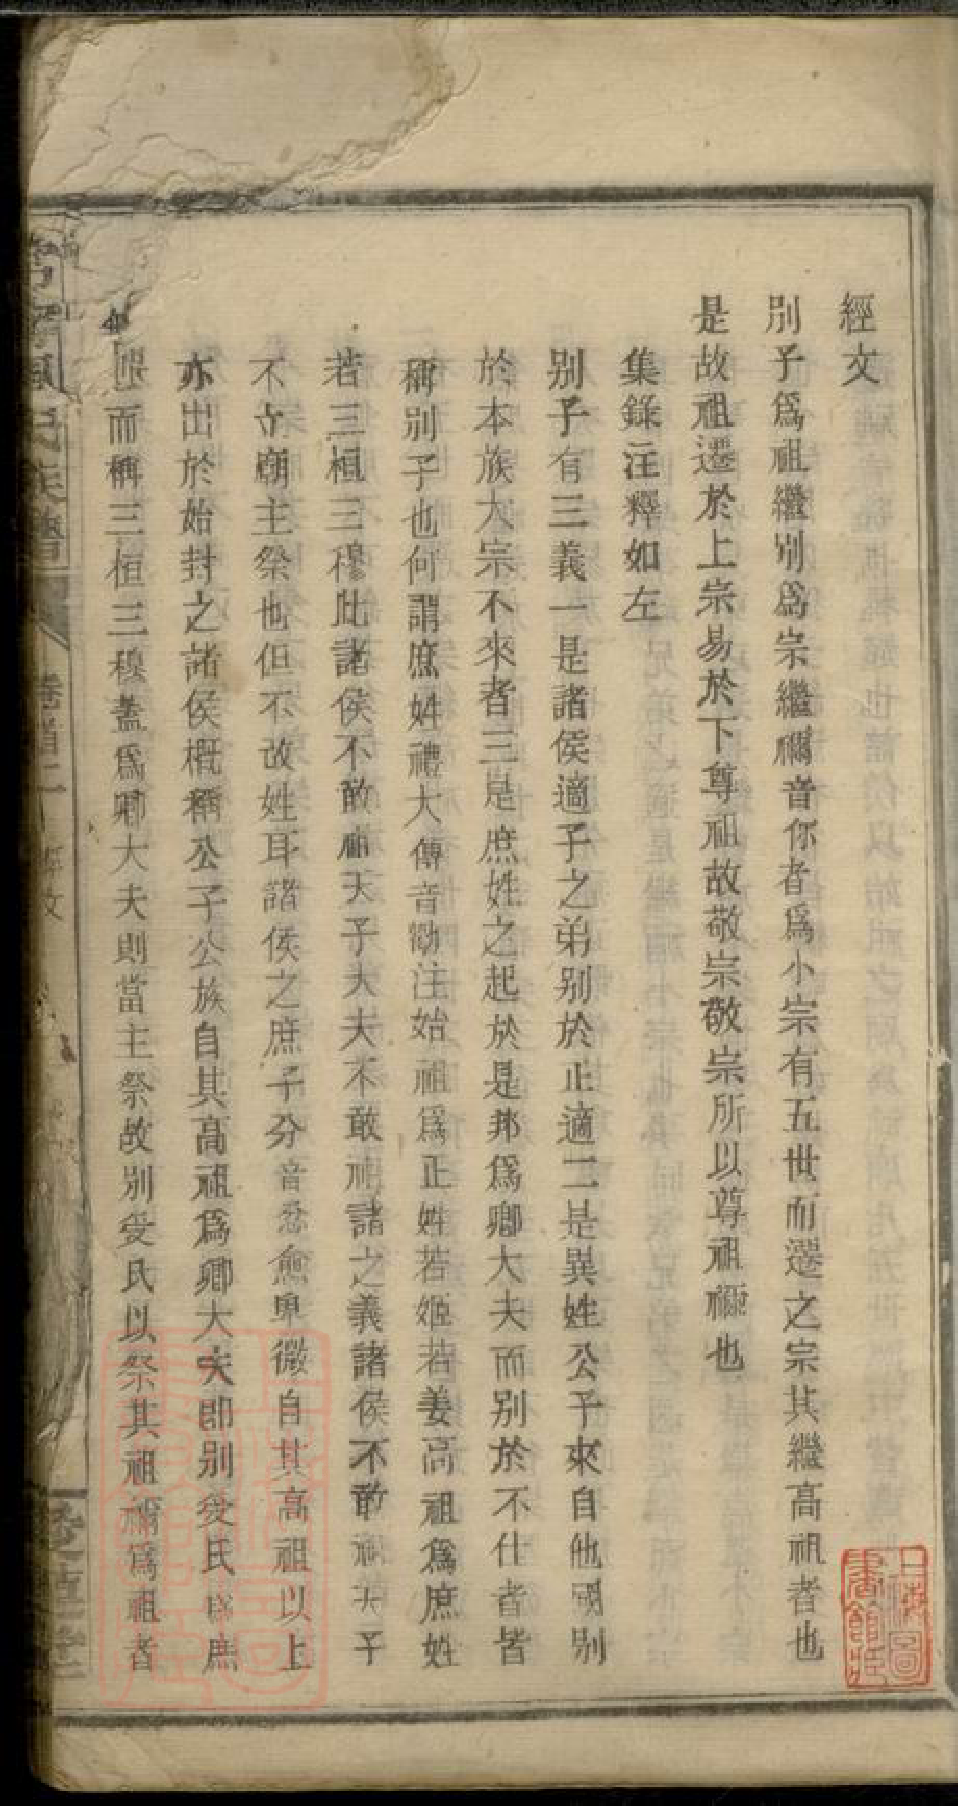 經文
別子爲祖繼別爲宗繼禰音你者爲小宗有五世而遷之宗其繼高祖者也
是故祖遷於上宗易於下尊祖故敬宗敬宗所以尊祖禰也
集錄注釋如左
別子有三義一是諸侯適子之弟別於正適二是異姓公子來自他國別
於本族大宗不來者三是庶姓之起於是邦爲卿大夫而別於不仕者皆
稱別子也何謂庶姓禮大傳音勸注始祖爲正姓若姬若姜高祖爲庶姓
若三桓三穆此諸侯不敢祖天子大夫不敢祖諸之義諸侯不敢祖天子
不立廟主祭也但不改姓耳諸侯之庶子分音忿愈卑微自其高祖以上
亦出於始封之諸侯概稱公子公族自其高祖爲卿大夫卽別受氏爲庶
而稱三桓三穆蓋爲卿大夫則當主祭故別受氏以祭其祖禰爲祖者
氏族譜
卷首二
經文